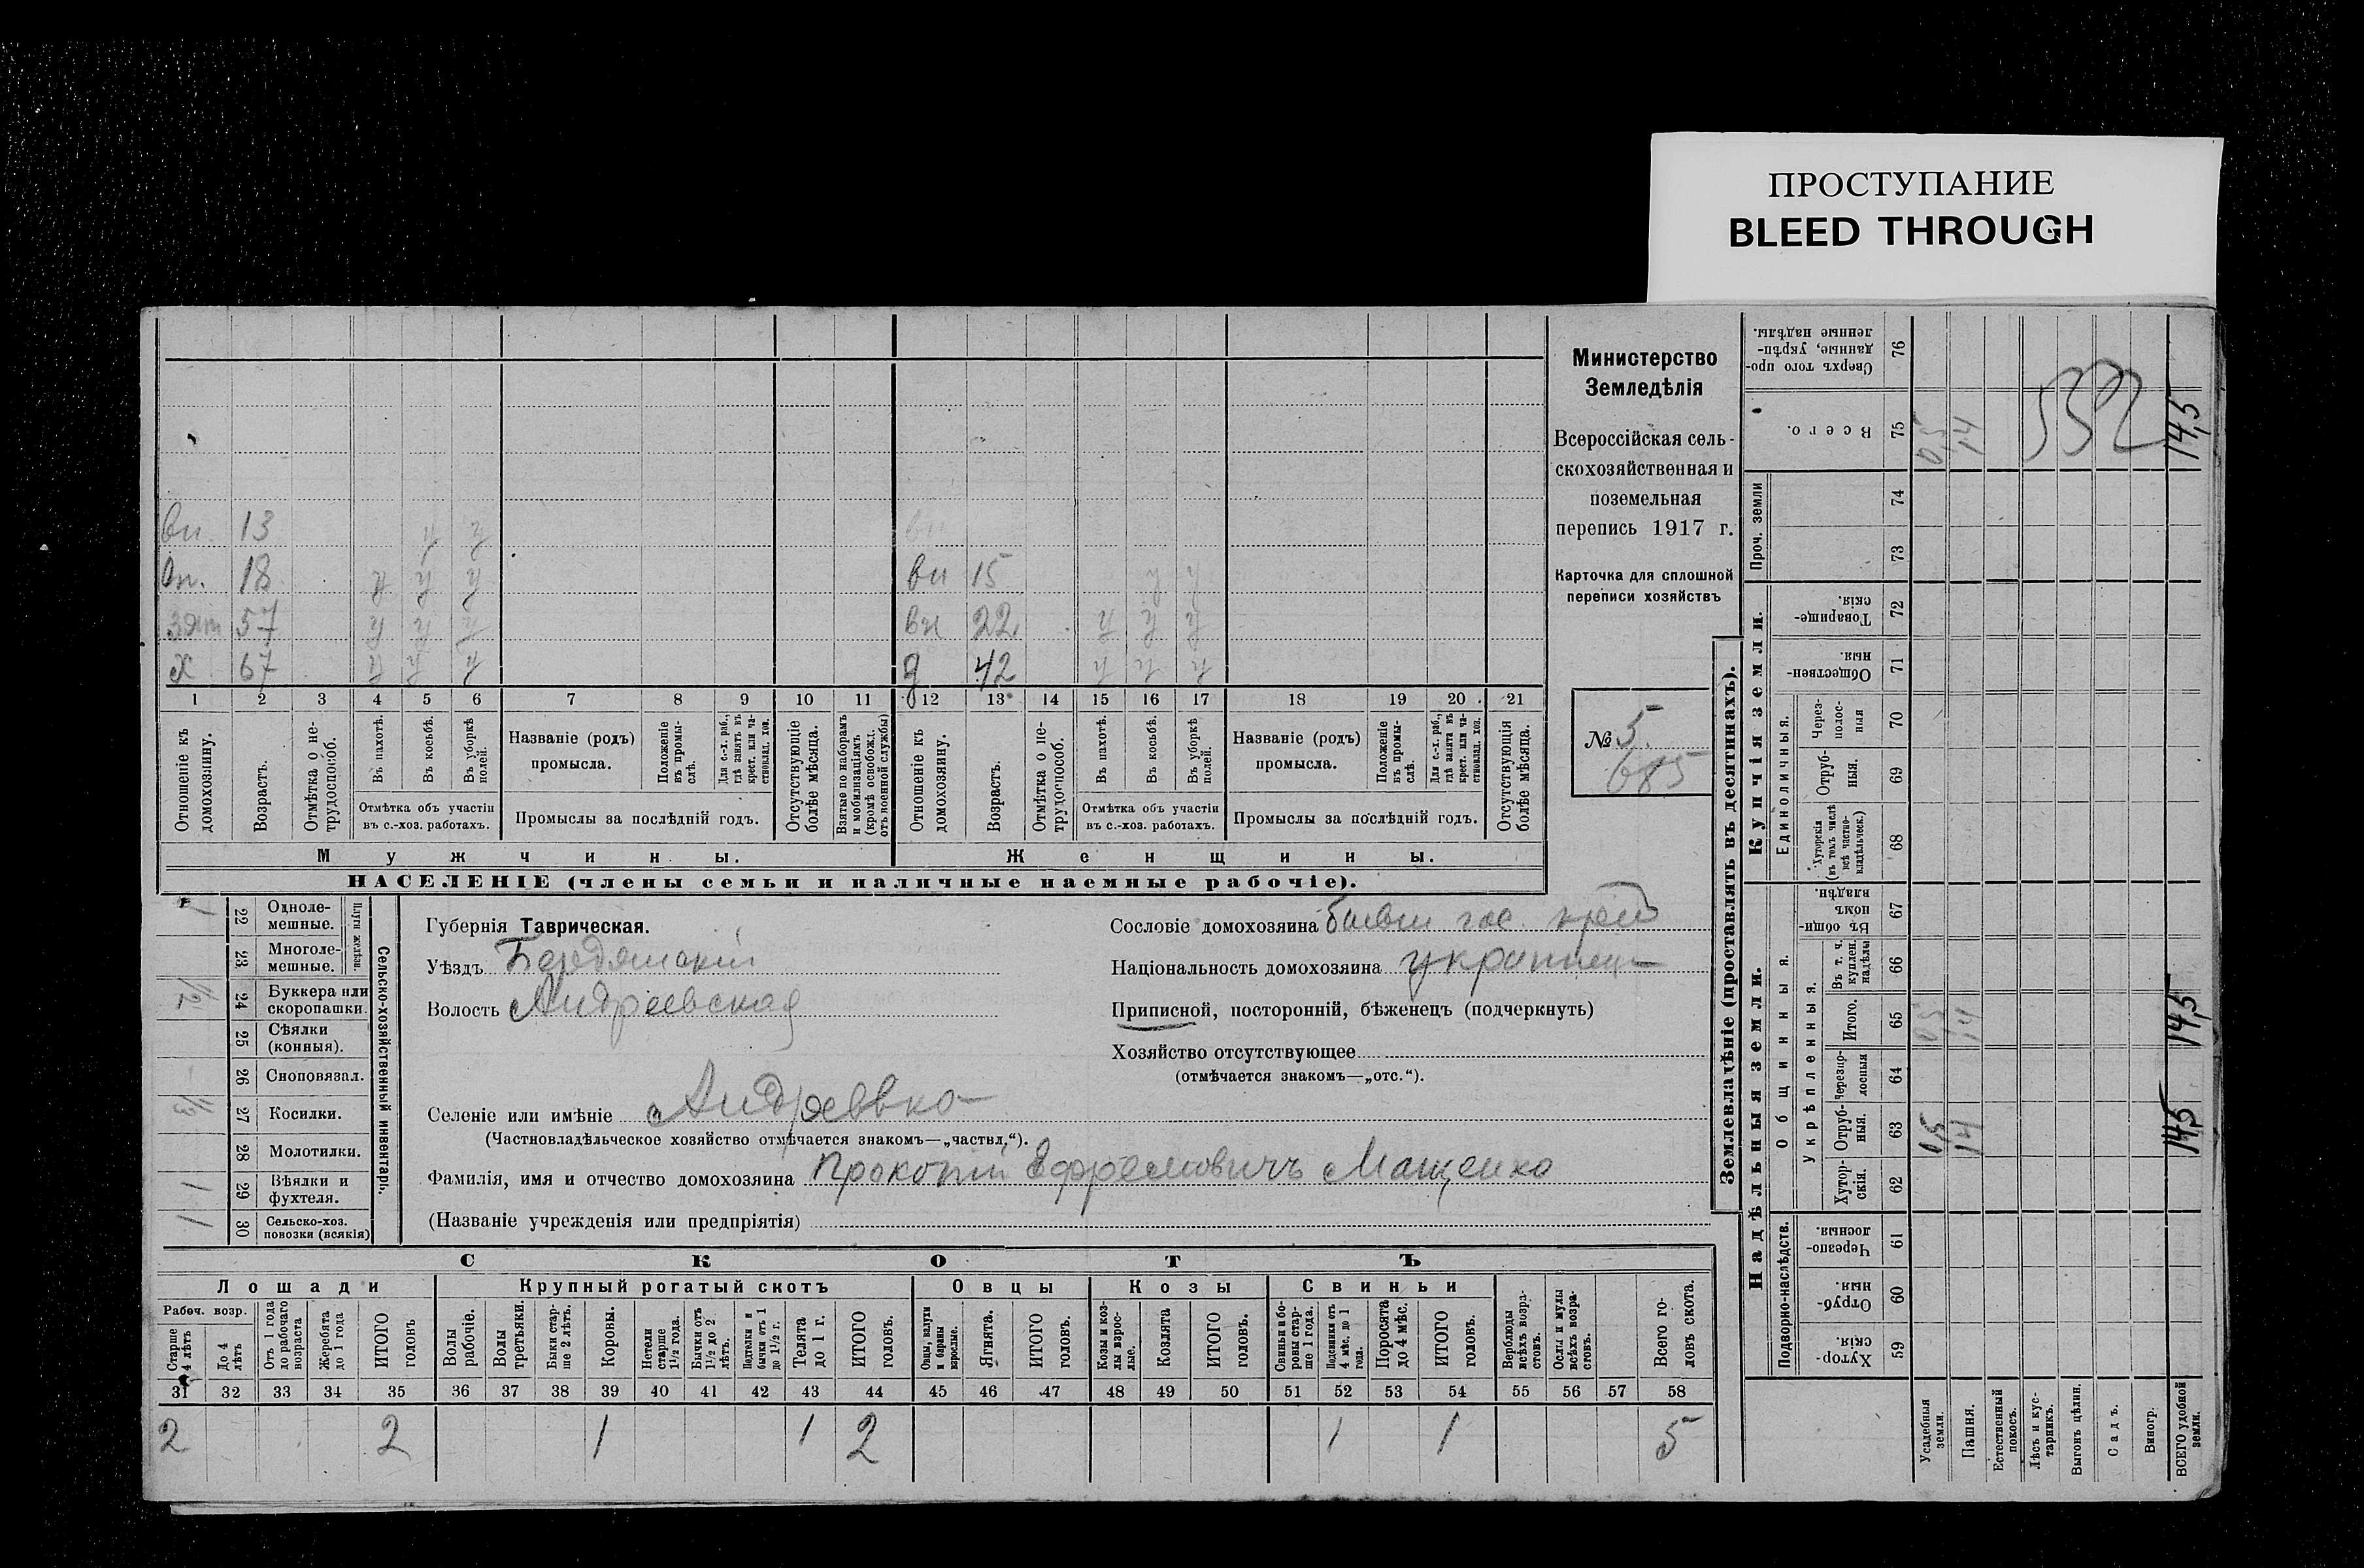 ПРОСТУПАНИЕ
BLEED THROUGH
Министерство
Земледѣлія
Всероссійская сель-
скохозяйственная и
поземельная
перепись 1917 г.
Карточка для сплошной
переписи хозяйствъ
№ 5.
685
вн. 13 у у
вн. 18 у у у
вн 15 у у
зят 57 у у у
вн 22 у у у
х 67 у у у
д 42 у у у
1 2 3 4 5 6 7 8 9 10 11 12 13 14 15 16 17 18 19 20 21
Отношеніе къ домохозяину.
Возрастъ.
Отмѣтка о не-трудоспособ.
Въ пахотѣ.
Въ косьбѣ.
Въ уборкѣ полей.
Отмѣтка объ участіи
въ с.-хоз. работахъ.
Названіе (родъ)
промысла.
Положеніе въ промы-слѣ.
Для с.-х. раб., гдѣ занятъ въ крест. или ча-стновлад. хоз.
Промыслы за послѣдній годъ.
Отсутствующіе болѣе мѣсяца.
Взятые по наборамъ и мобилизаціямъ (кромѣ освобожд. отъ военной службы)
Отношеніе къ домохозяину.
Возрастъ.
Отмѣтка о не-трудоспособ.
Въ пахотѣ.
Въ косьбѣ.
Въ уборкѣ полей.
Отмѣтка объ участіи
въ с.-хоз. работахъ.
Названіе (родъ)
промысла.
Положеніе въ промы-слѣ.
Для с.-х. раб., гдѣ занята въ крест. или ча-стновлад. хоз.
Промыслы за послѣдній годъ.
Отсутствующія болѣе мѣсяца.
Мужчины.
Женщины.
НАСЕЛЕНІЕ (члены семьи и наличные наемные рабочіе).
Сельско-хозяйственный инвентарь.
Плуги желѣзн.
22 Одноле-мешные. 1
23 Многоле-мешные.
24 Буккера или скоропашки. 1/2
25 Сѣялки (конныя).
26 Сноповязал.
27 Косилки. 1/3
28 Молотилки.
29 Вѣялки и фухтеля. 1
30 Сельско-хоз. повозки (всякія) 1
Губернія Таврическая.
Уѣздъ Бердянскій
Волость Андреевская
Селеніе или имѣніе Андреевка
(Частновладѣльческое хозяйство отмѣчается знакомъ—„частвл.“).
Фамилія, имя и отчество домохозяина Прокопій Ефремовичъ Мащенко
(Названіе учрежденія или предпріятія)
Сословіе домохозяина бывш гос. крес
Національность домохозяина украинец
Приписной, посторонній, бѣженецъ (подчеркнуть)
Хозяйство отсутствующее
(отмѣчается знакомъ—„отс.“).
СКОТЪ
Лошади
Крупный рогатый скотъ
Овцы
Козы
Свиньи
Рабоч. возр.
Старше 4 лѣтъ
До 4 лѣтъ
Отъ 1 года до рабочаго возраста
Жеребята до 1 года
ИТОГО головъ
Волы рабочіе.
Волы третьяки.
Быки стар-ше 2 лѣтъ.
Коровы.
Нетели старше 1 1/2 года.
Бычки отъ 1 1/2 до 2 лѣтъ.
Подтелки и бычки отъ 1 до 1 1/2 г.
Телята до 1 г.
ИТОГО головъ.
Овцы, валухи и бараны взрослые.
Ягнята.
ИТОГО головъ.
Козы и коз-лы взрос-лые.
Козлята
ИТОГО головъ.
Свиньи и бо-ровы стар-ше 1 года.
Подсвинки отъ 4 мѣс. до 1 года.
Поросята до 4 мѣс.
ИТОГО головъ.
Верблюды всѣхъ возра-стовъ.
Ослы и мулы всѣхъ возра-стовъ.
Всего го-ловъ скота.
31 32 33 34 35 36 37 38 39 40 41 42 43 44 45 46 47 48 49 50 51 52 53 54 55 56 57 58
2 2 1 1 2 1 1 5
Землевладѣніе (проставлять въ десятинахъ).
Надѣльныя земли.
Купчія земли.
Проч. земли
Подворно-наслѣдств.
Общинныя.
Укрѣпленныя.
Единоличныя.
Хутор-скія. 59
Отруб-ныя. 60
Черезпо-лосныя. 61
Хутор-скія. 62
Отруб-ныя. 63
Черезпо-лосныя 64
Итого. 65
Въ т. ч. куплен. надѣлы 66
Въ общи-номъ владѣн. 67
Хуторскія (въ томъ числѣ всѣ частно-владѣльческ.) 68
Отруб-ныя. 69
Через-полос-ныя 70
Обществен-ныя. 71
Товарище-скія. 72
73
74
Всего. 75
Сверхъ того про-данные, укрѣп-ленные надѣлы. 76
Усадебныя земли. 0,5 0,5 0,5
Пашня. 14 14 14
Естественный покосъ.
Лѣсъ и кус-тарникъ.
Выгонъ цѣлин.
Садъ.
Виногр.
ВСЕГО удобной земли. 14,5 14,5 14,5
532